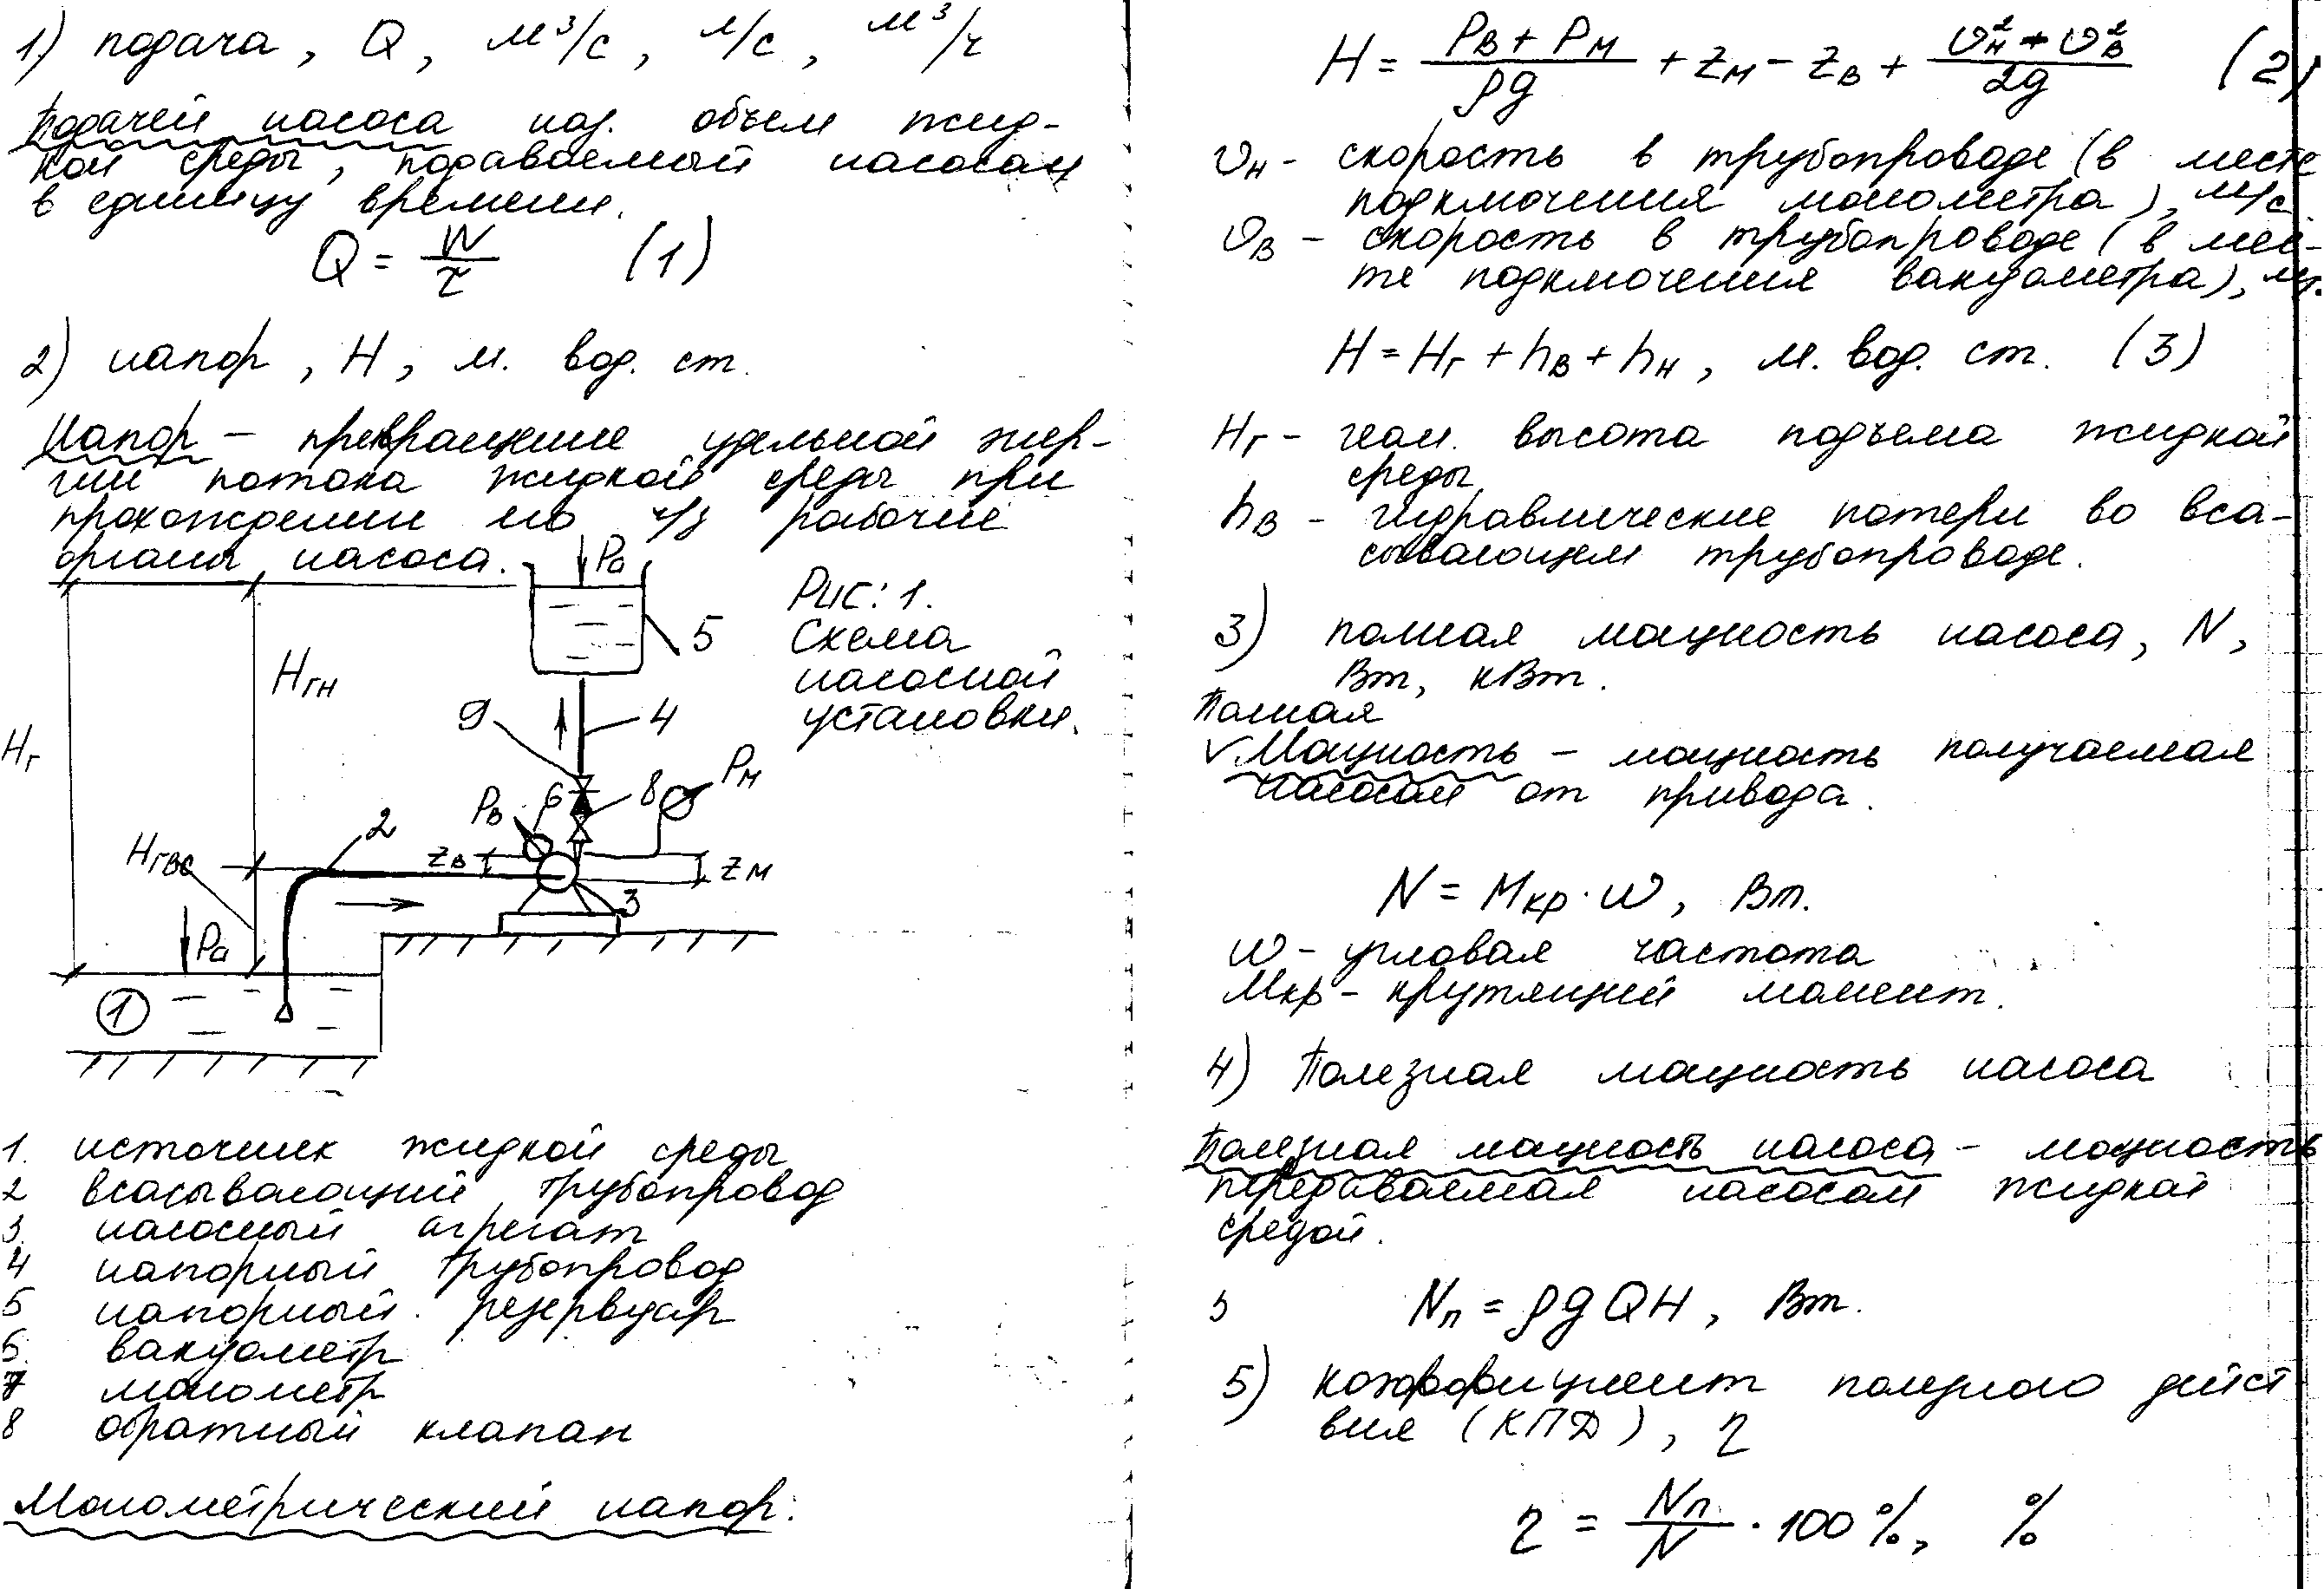 1) подача, Q, м³/с, л/с, м³/ч
Подачей насоса наз. объем жид-
кой среды, подаваемый насосом
в единицу времени.
Q = W/τ (1)
2) напор, H, м. вод. ст.
Напор – превращение удельной энер-
гии потока жидкой среды при
прохождении его ч/з рабочие
органы насоса.
Pa
Рис: 1.
Схема
насосной
установки.
5
Hгн
9
4
Hг
Pв
6
8
Pм
2
Hгвс
zв
zм
3
Pa
1
1. источник жидкой среды
2 всасывающий трубопровод
3. насосный агрегат
4 напорный трубопровод
5 напорный резервуар
6. вакуометр
7 монометр
8 обратный клапан
Монометрический напор:
H = (Pв + Pм)/ρg + zм – zв + (υ²н + υ²в)/2g (2)
υн – скорость в трубопроводе (в месте
подключения монометра), м/с
υв – скорость в трубопроводе (в мес-
те подключения вакуометра),
H = Hг + hв + hн, м. вод. ст. (3)
Hг – геом. высота подъема жидкой
среды
hв – гидравлические потери во вса-
сывающем трубопроводе.
3) полная мощность насоса, N,
Вт, кВт.
Полная
√ Мощность – мощность получаемая
насосом от привода.
N = Mкр · ω, Вт.
ω – угловая частота
Mкр – крутящий момент.
4) Полезная мощность насоса
Полезная мощность насоса – мощность
передаваемая насосом жидкой
средой.
Nп = ρgQH, Вт.
5) коэффициент полезного дейст
вия (КПД), η
η = Nп/N · 100%, %